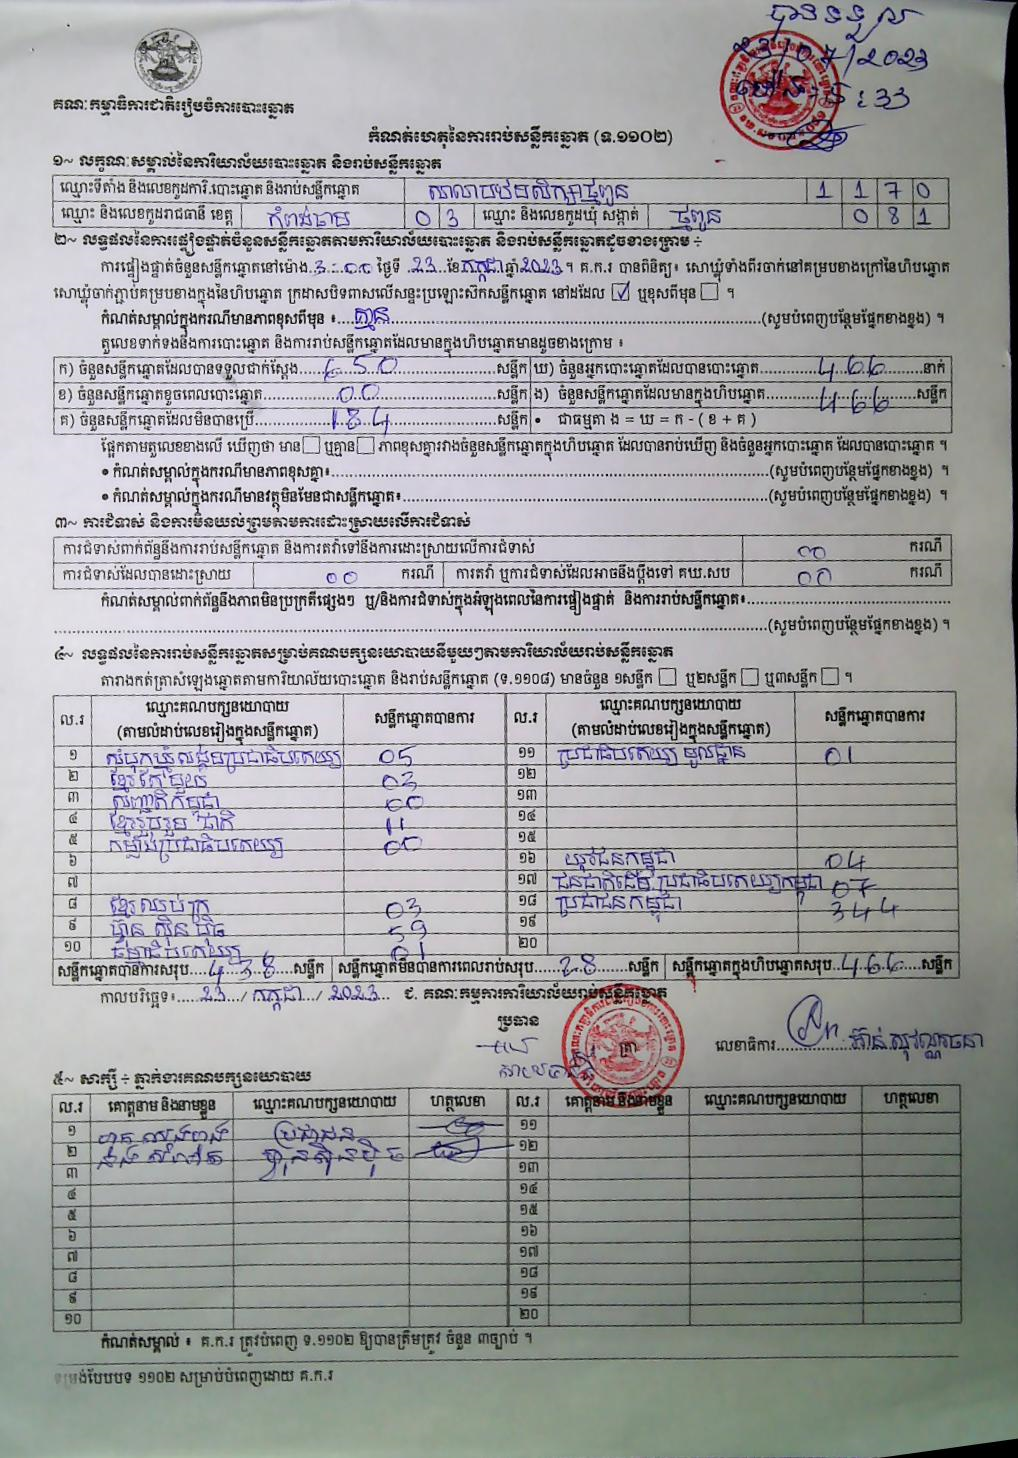 បានទទួល
23/07/2023
ម៉ោង 15:33
គណៈកម្មាធិការជាតិរៀបចំការបោះឆ្នោត
កំណត់ហេតុនៃការរាប់សន្លឹកឆ្នោត (ទ.១១០២)
១~ លក្ខណៈសម្គាល់នៃការិយាល័យបោះឆ្នោត និងរាប់សន្លឹកឆ្នោត
ឈ្មោះទីតាំង និងលេខកូដការិ.បោះឆ្នោត និងរាប់សន្លឹកឆ្នោត សាលាបឋមសិក្សាថ្មពូន 1 1 7 0
ឈ្មោះ និងលេខកូដរាជធានី ខេត្ត កំពង់ចាម 0 3 ឈ្មោះ និងលេខកូដឃុំ សង្កាត់ ថ្មពូន 0 8 1
២~ លទ្ធផលនៃការផ្ទៀងផ្ទាត់ចំនួនសន្លឹកឆ្នោតតាមការិយាល័យបោះឆ្នោត និងរាប់សន្លឹកឆ្នោតដូចខាងក្រោម ÷
ការផ្ទៀងផ្ទាត់ចំនួនសន្លឹកឆ្នោតនៅម៉ោង 3:00 ថ្ងៃទី 23 ខែ កក្កដា ឆ្នាំ 2023 ។ គ.ក.រ បានពិនិត្យ៖ សោឃ្លុំទាំងពីរចាក់នៅគម្របខាងក្រៅនៃហិបឆ្នោត
សោឃ្លុំចាក់ភ្ជាប់គម្របខាងក្នុងនៃហិបឆ្នោត ក្រដាសបិទពាសលើសន្ទះប្រឡោះសឹកសន្លឹកឆ្នោត នៅដដែល ☑ ឬខុសពីមុន ☐ ។
កំណត់សម្គាល់ក្នុងករណីមានភាពខុសពីមុន ៖ គ្មាន (សូមបំពេញបន្ថែមផ្នែកខាងខ្នង) ។
តួលេខទាក់ទងនឹងការបោះឆ្នោត និងការរាប់សន្លឹកឆ្នោតដែលមានក្នុងហិបឆ្នោតមានដូចខាងក្រោម ៖
ក) ចំនួនសន្លឹកឆ្នោតដែលបានទទួលជាក់ស្ដែង 650 សន្លឹក ឃ) ចំនួនអ្នកបោះឆ្នោតដែលបានបោះឆ្នោត 466 នាក់
ខ) ចំនួនសន្លឹកឆ្នោតខូចពេលបោះឆ្នោត 00 សន្លឹក ង) ចំនួនសន្លឹកឆ្នោតដែលមានក្នុងហិបឆ្នោត 466 សន្លឹក
គ) ចំនួនសន្លឹកឆ្នោតដែលមិនបានប្រើ 184 សន្លឹក • ជាធម្មតា ង = ឃ = ក - ( ខ + គ )
ផ្អែកតាមតួលេខខាងលើ ឃើញថា មាន ☐ ឬគ្មាន ☐ ភាពខុសគ្នារវាងចំនួនសន្លឹកឆ្នោតក្នុងហិបឆ្នោត ដែលបានរាប់ឃើញ និងចំនួនអ្នកបោះឆ្នោត ដែលបានបោះឆ្នោត ។
• កំណត់សម្គាល់ក្នុងករណីមានភាពខុសគ្នា៖ (សូមបំពេញបន្ថែមផ្នែកខាងខ្នង) ។
• កំណត់សម្គាល់ក្នុងករណីមានវត្ថុមិនមែនជាសន្លឹកឆ្នោត៖ (សូមបំពេញបន្ថែមផ្នែកខាងខ្នង) ។
៣~ ការជំទាស់ និងការមិនយល់ព្រមតាមការដោះស្រាយលើការជំទាស់
ការជំទាស់ពាក់ព័ន្ធនឹងការរាប់សន្លឹកឆ្នោត និងការតវ៉ាទៅនឹងការដោះស្រាយលើការជំទាស់ 00 ករណី
ការជំទាស់ដែលបានដោះស្រាយ 00 ករណី ការតវ៉ា ឬការជំទាស់ដែលអាចនឹងប្ដឹងទៅ គឃ.សប 00 ករណី
កំណត់សម្គាល់ពាក់ព័ន្ធនឹងភាពមិនប្រក្រតីផ្សេងៗ ឬ/និងការជំទាស់ក្នុងអំឡុងពេលនៃការផ្ទៀងផ្ទាត់ និងការរាប់សន្លឹកឆ្នោត៖
(សូមបំពេញបន្ថែមផ្នែកខាងខ្នង) ។
៤~ លទ្ធផលនៃការរាប់សន្លឹកឆ្នោតសម្រាប់គណបក្សនយោបាយនីមួយៗតាមការិយាល័យរាប់សន្លឹកឆ្នោត
តារាងកត់ត្រាសំឡេងឆ្នោតតាមការិយាល័យបោះឆ្នោត និងរាប់សន្លឹកឆ្នោត (ទ.១១០៨) មានចំនួន ១សន្លឹក ☐ ឬ២សន្លឹក ☐ ឬ៣សន្លឹក ☐ ។
ល.រ ឈ្មោះគណបក្សនយោបាយ (តាមលំដាប់លេខរៀងក្នុងសន្លឹកឆ្នោត) សន្លឹកឆ្នោតបានការ ល.រ ឈ្មោះគណបក្សនយោបាយ (តាមលំដាប់លេខរៀងក្នុងសន្លឹកឆ្នោត) សន្លឹកឆ្នោតបានការ
១ សំបុកឃ្មុំសង្គមប្រជាធិបតេយ្យ 05 ១១ ប្រជាធិបតេយ្យមូលដ្ឋាន 01
២ ខ្មែរតែមួយ 03 ១២
៣ សញ្ជាតិកម្ពុជា 00 ១៣
៤ ខ្មែររួបរួមជាតិ 11 ១៤
៥ កម្លាំងប្រជាធិបតេយ្យ 00 ១៥
៦ ១៦ យុវជនកម្ពុជា 04
៧ ១៧ ជនជាតិដើមប្រជាធិបតេយ្យកម្ពុជា 07
៨ ខ្មែរឈប់ក្រ 03 ១៨ ប្រជាជនកម្ពុជា 344
៩ ហ៊្វុនស៊ិនប៉ិច 59 ១៩
១០ ធម្មាធិបតេយ្យ 01 ២០
សន្លឹកឆ្នោតបានការសរុប 438 សន្លឹក សន្លឹកឆ្នោតមិនបានការពេលរាប់សរុប 28 សន្លឹក សន្លឹកឆ្នោតក្នុងហិបឆ្នោតសរុប 466 សន្លឹក
កាលបរិច្ឆេទ៖ 23 / កក្កដា / 2023 ជ. គណៈកម្មការការិយាល័យរាប់សន្លឹកឆ្នោត
ប្រធាន
ត្រា
លេខាធិការ
៥~ សាក្សី ÷ ភ្នាក់ងារគណបក្សនយោបាយ
ល.រ គោត្តនាម និងនាមខ្លួន ឈ្មោះគណបក្សនយោបាយ ហត្ថលេខា ល.រ គោត្តនាម និងនាមខ្លួន ឈ្មោះគណបក្សនយោបាយ ហត្ថលេខា
១ ប្រជាជន ១១
២ ហ្វុនស៊ិនប៉ិច ១២
៣ ១៣
៤ ១៤
៥ ១៥
៦ ១៦
៧ ១៧
៨ ១៨
៩ ១៩
១០ ២០
កំណត់សម្គាល់ ៖ គ.ក.រ ត្រូវបំពេញ ទ.១១០២ ឱ្យបានត្រឹមត្រូវ ចំនួន ៣ច្បាប់ ។
ទម្រង់បែបបទ ១១០២ សម្រាប់បំពេញដោយ គ.ក.រ